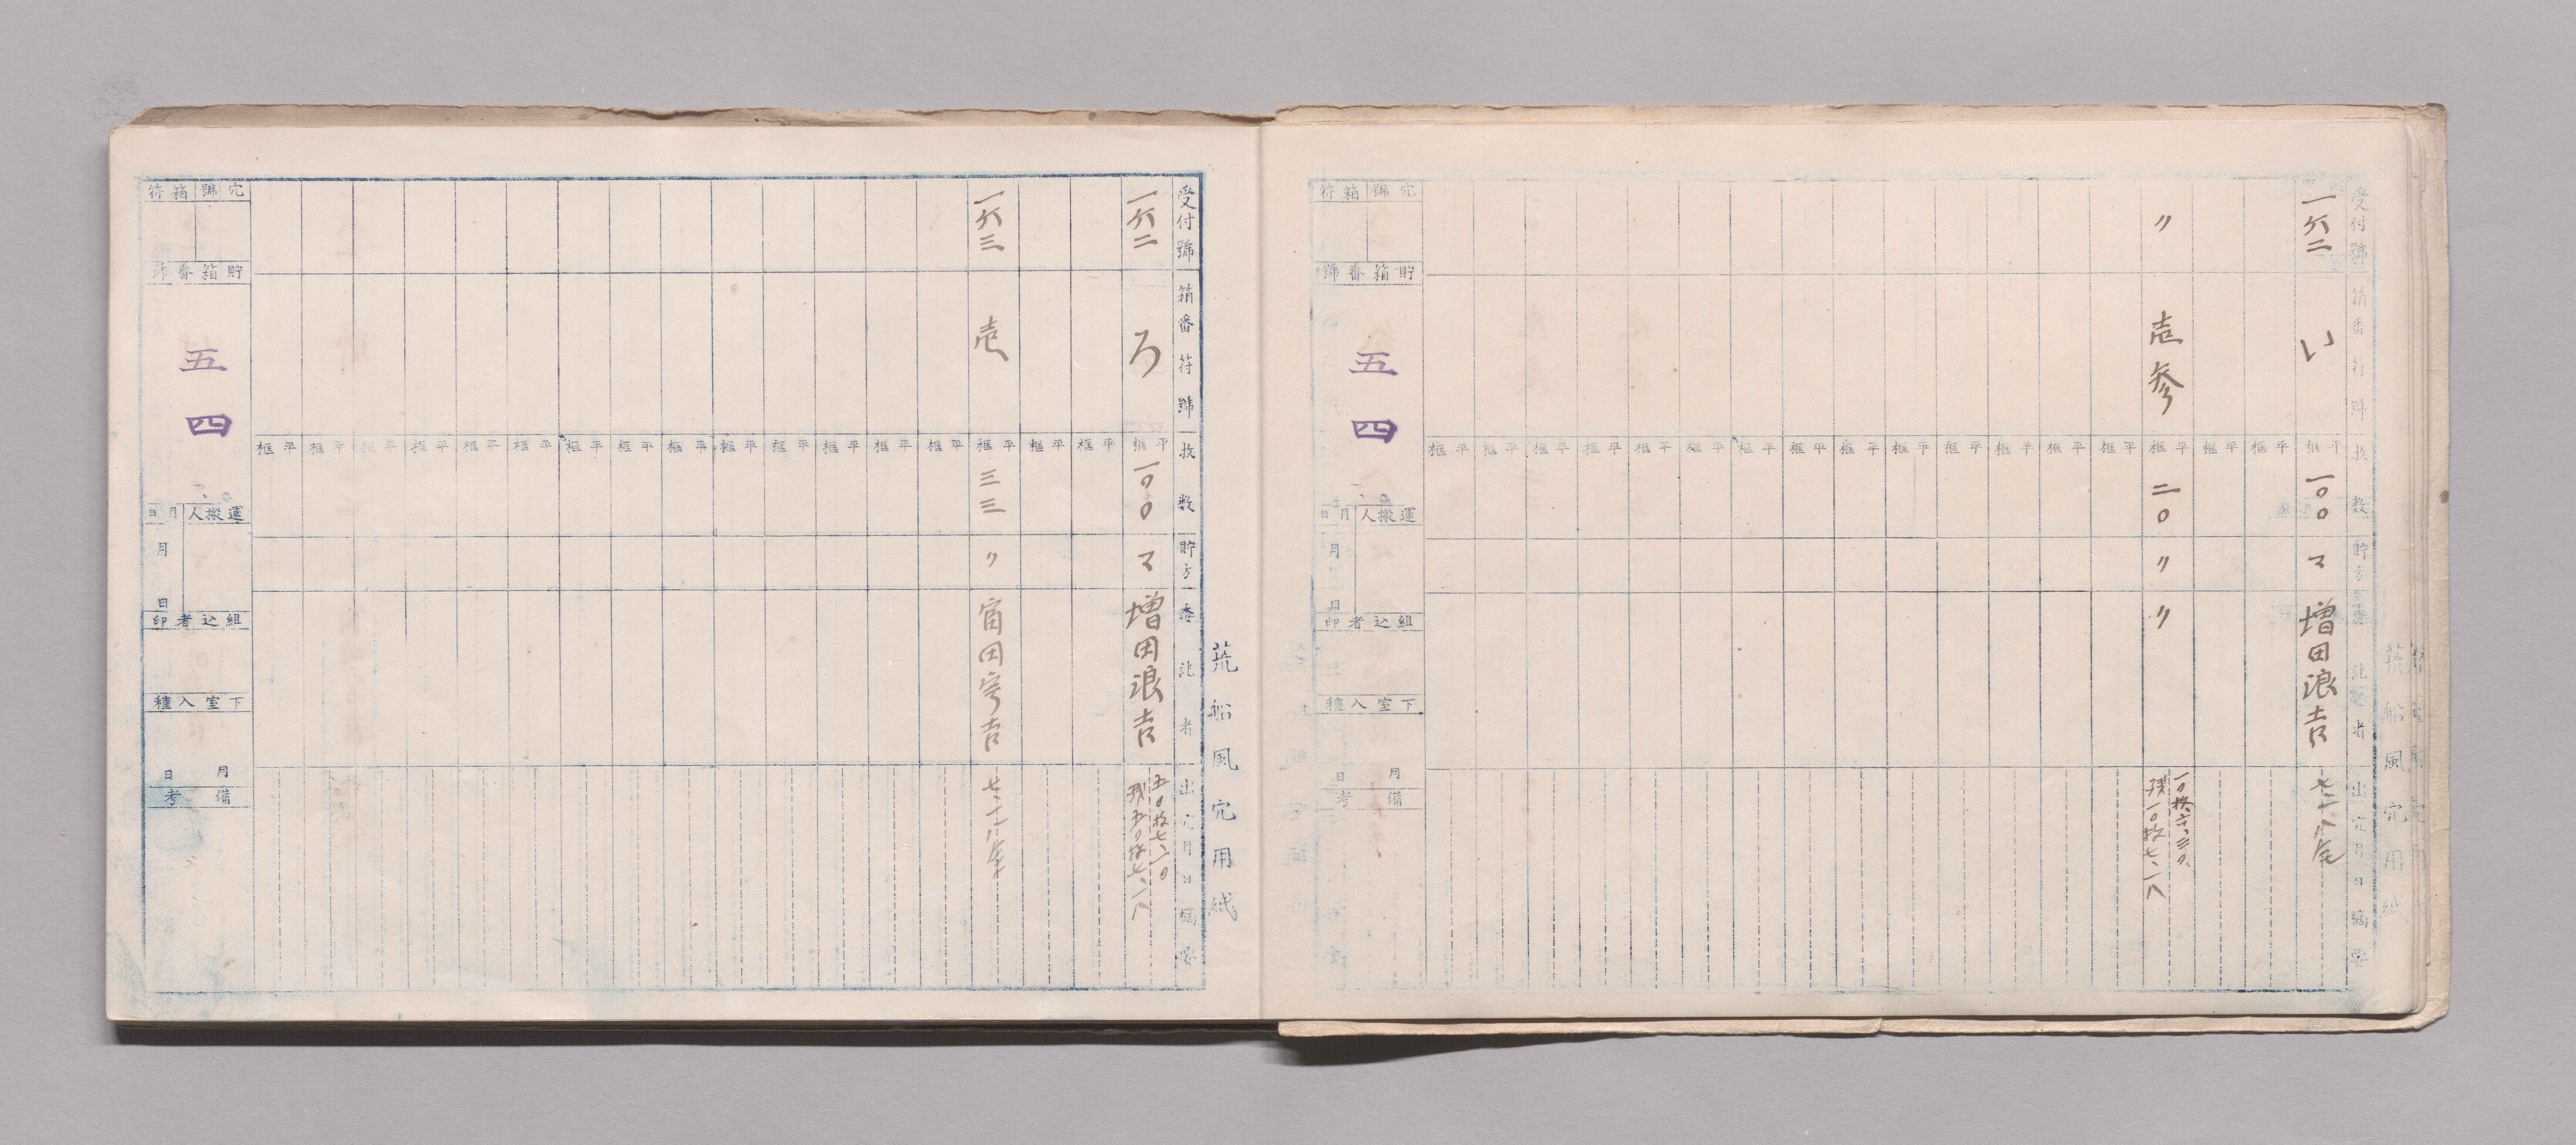 受付號
箱番符號
枚数
貯方
委託者
出穴月日摘要
一六二
い
平框
一〇〇
マ
増田浪吉
平框
平框
〃
壱参
平框
二〇
〃
〃
一〇枚六、三〇、
残一〇枚七、一八
平框
平框
平框
平框
平框
平框
平框
平框
平框
平框
平框
平框
平框
平框
穴號箱符
貯箱番號
五四
運搬人
月日
月日
組込者印
下室入種
月日
備考
荒船風穴用紙
受付號
箱番符號
枚数
貯方
委託者
出穴月日摘要
一六二
ろ
平框
一〇〇
マ
増田浪吉
五〇枚七、一〇
残五〇枚七、一八
平框
平框
一六三
壱
平框
三三
〃
平框
平框
平框
平框
平框
平框
平框
平框
平框
平框
平框
平框
平框
平框
穴號箱符
貯箱番號
五四
運搬人
月日
月日
組込者印
下室入種
月日
備考